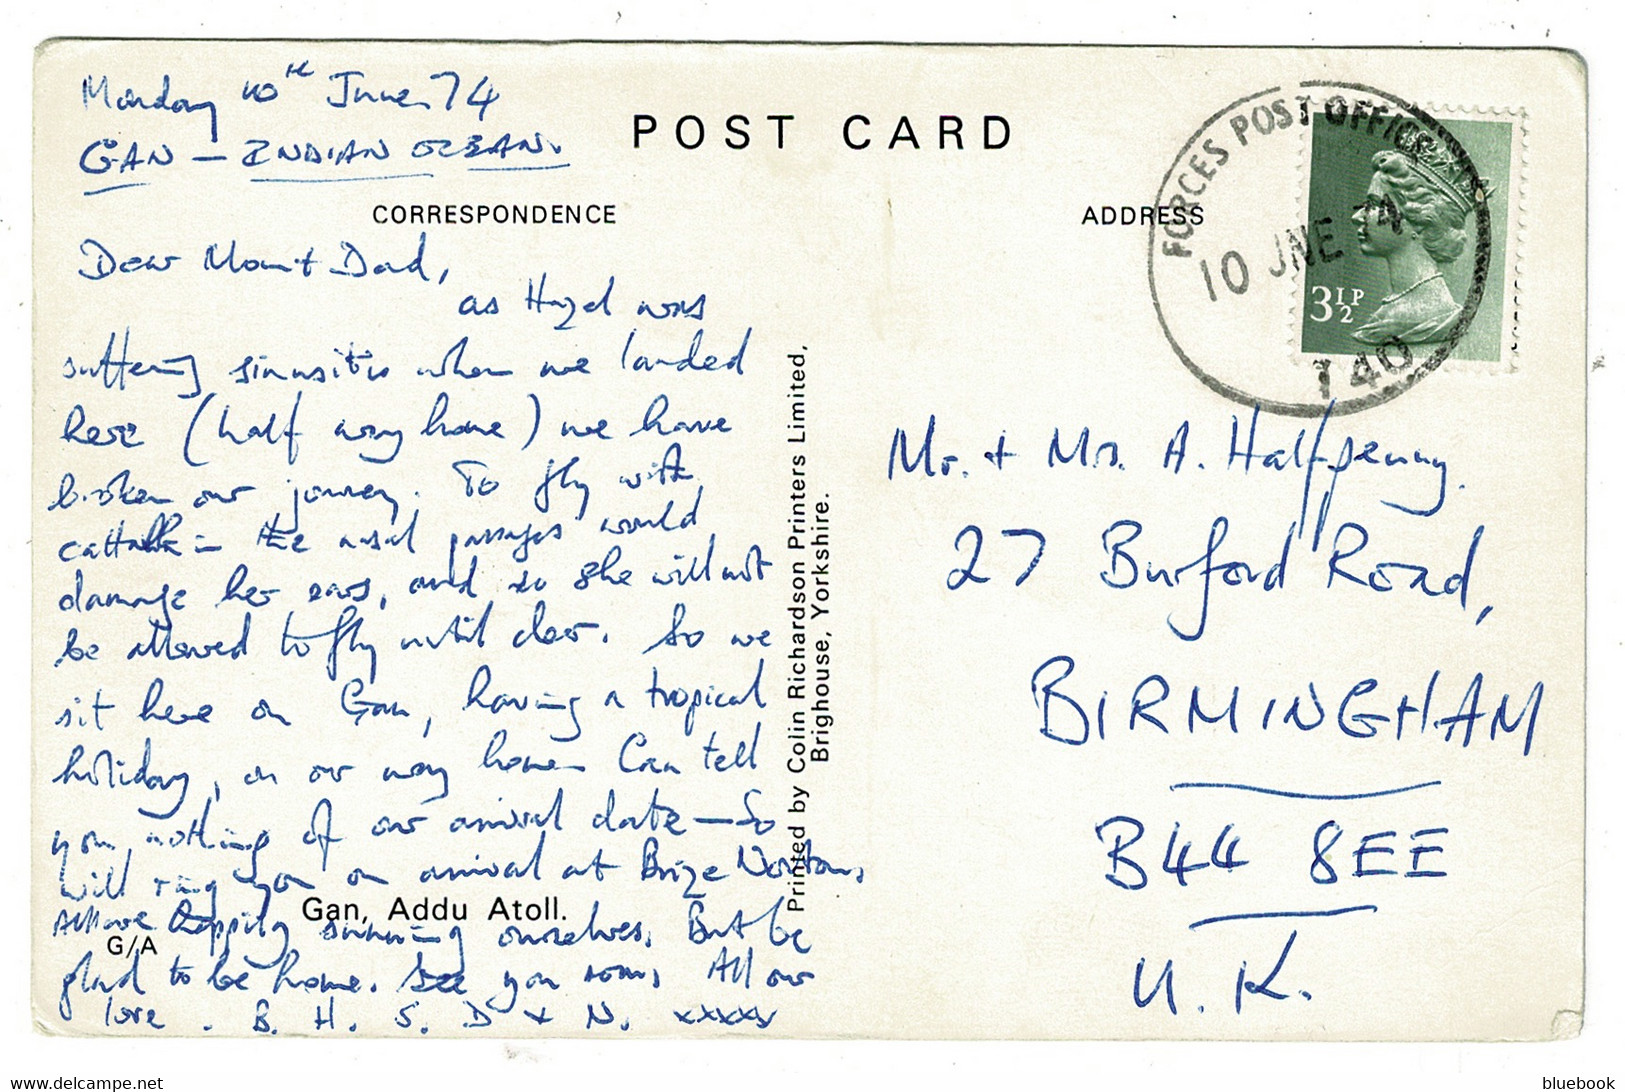 Monday 10th June 74
GAN — INDIAN OCEAN.
POST CARD
CORRESPONDENCE
ADDRESS
FORCES POST OFFICE
10 JNE 74
140
3½P
Dear Mom + Dad,
as Hazel was
suffering sinusitis when we landed
here (half way home) we have
broken our journey. To fly with
catarrh in the nasal passages would
damage her ears, and so she will not
be allowed to fly until clear. So we
sit here on Gan, having a tropical
holiday, on our way home. Can tell
you nothing of our arrival date — So
will ring you on arrival at Brize Norton.
All are happily sunning ourselves. But be
glad to be home. See you soon, All our
love. B. H. S. D + N. xxxxx
Gan, Addu Atoll.
G/A
Printed by Colin Richardson Printers Limited,
Brighouse, Yorkshire.
Mr. + Mrs. A. Halfpenny.
27 Burford Road,
BIRMINGHAM
B44 8EE
U.K.
www.delcampe.net
bluebook